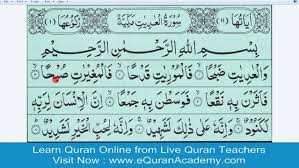 اٰيَاتُهَا (١١) سُوْرَةُ الْعٰدِيٰتِ مَكِّيَّةٌ رُكُوْعُهَا (١)
بِسْمِ اللهِ الرَّحْمٰنِ الرَّحِيْمِ
وَالْعٰدِيٰتِ ضَبْحًا فَالْمُوْرِيٰتِ قَدْحًا فَالْمُغِيْرٰتِ صُبْحًا
فَاَثَرْنَ بِهٖ نَقْعًا فَوَسَطْنَ بِهٖ جَمْعًا اِنَّ الْاِنْسَانَ لِرَبِّهٖ
لَكَنُوْدٌ وَاِنَّهٗ عَلٰى ذٰلِكَ لَشَهِيْدٌ وَاِنَّهٗ لِحُبِّ الْخَيْرِ لَشَدِيْدٌ
Learn Quran Online from Live Quran Teachers
Visit Now : www.eQuranAcademy.com